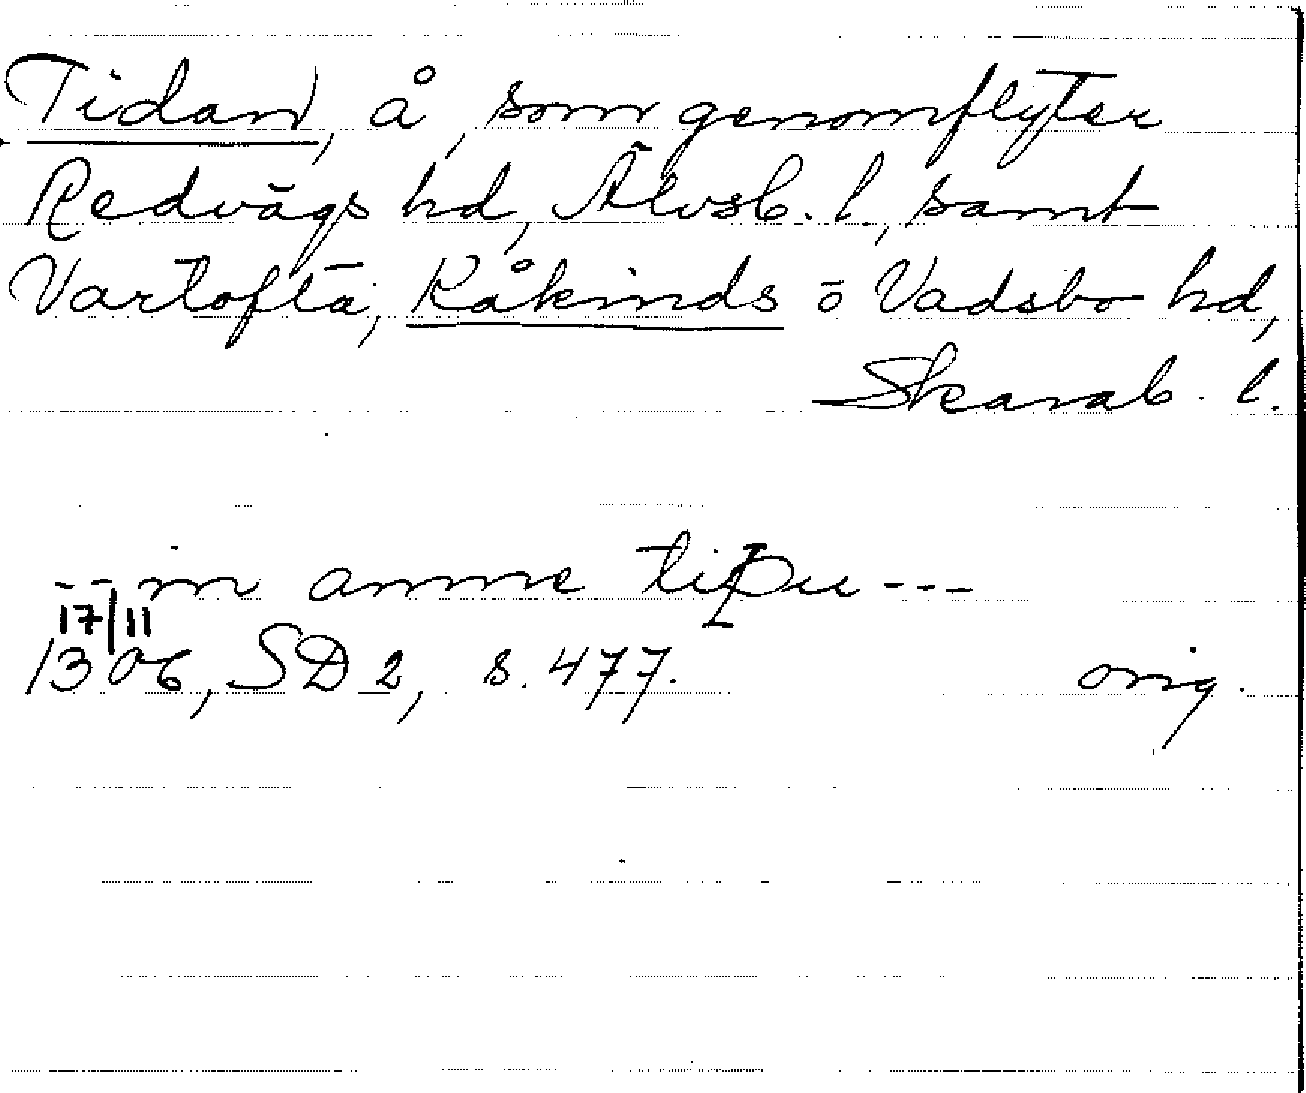 Tidan, å, som genomflyter
Redvägs hd, Älvsb. l., samt
Vartofta, Kåkinds o Vadsbo hd,
Skarab. l.
-- in amne
---
17/11
1306, SD 2, s. 477. orig.